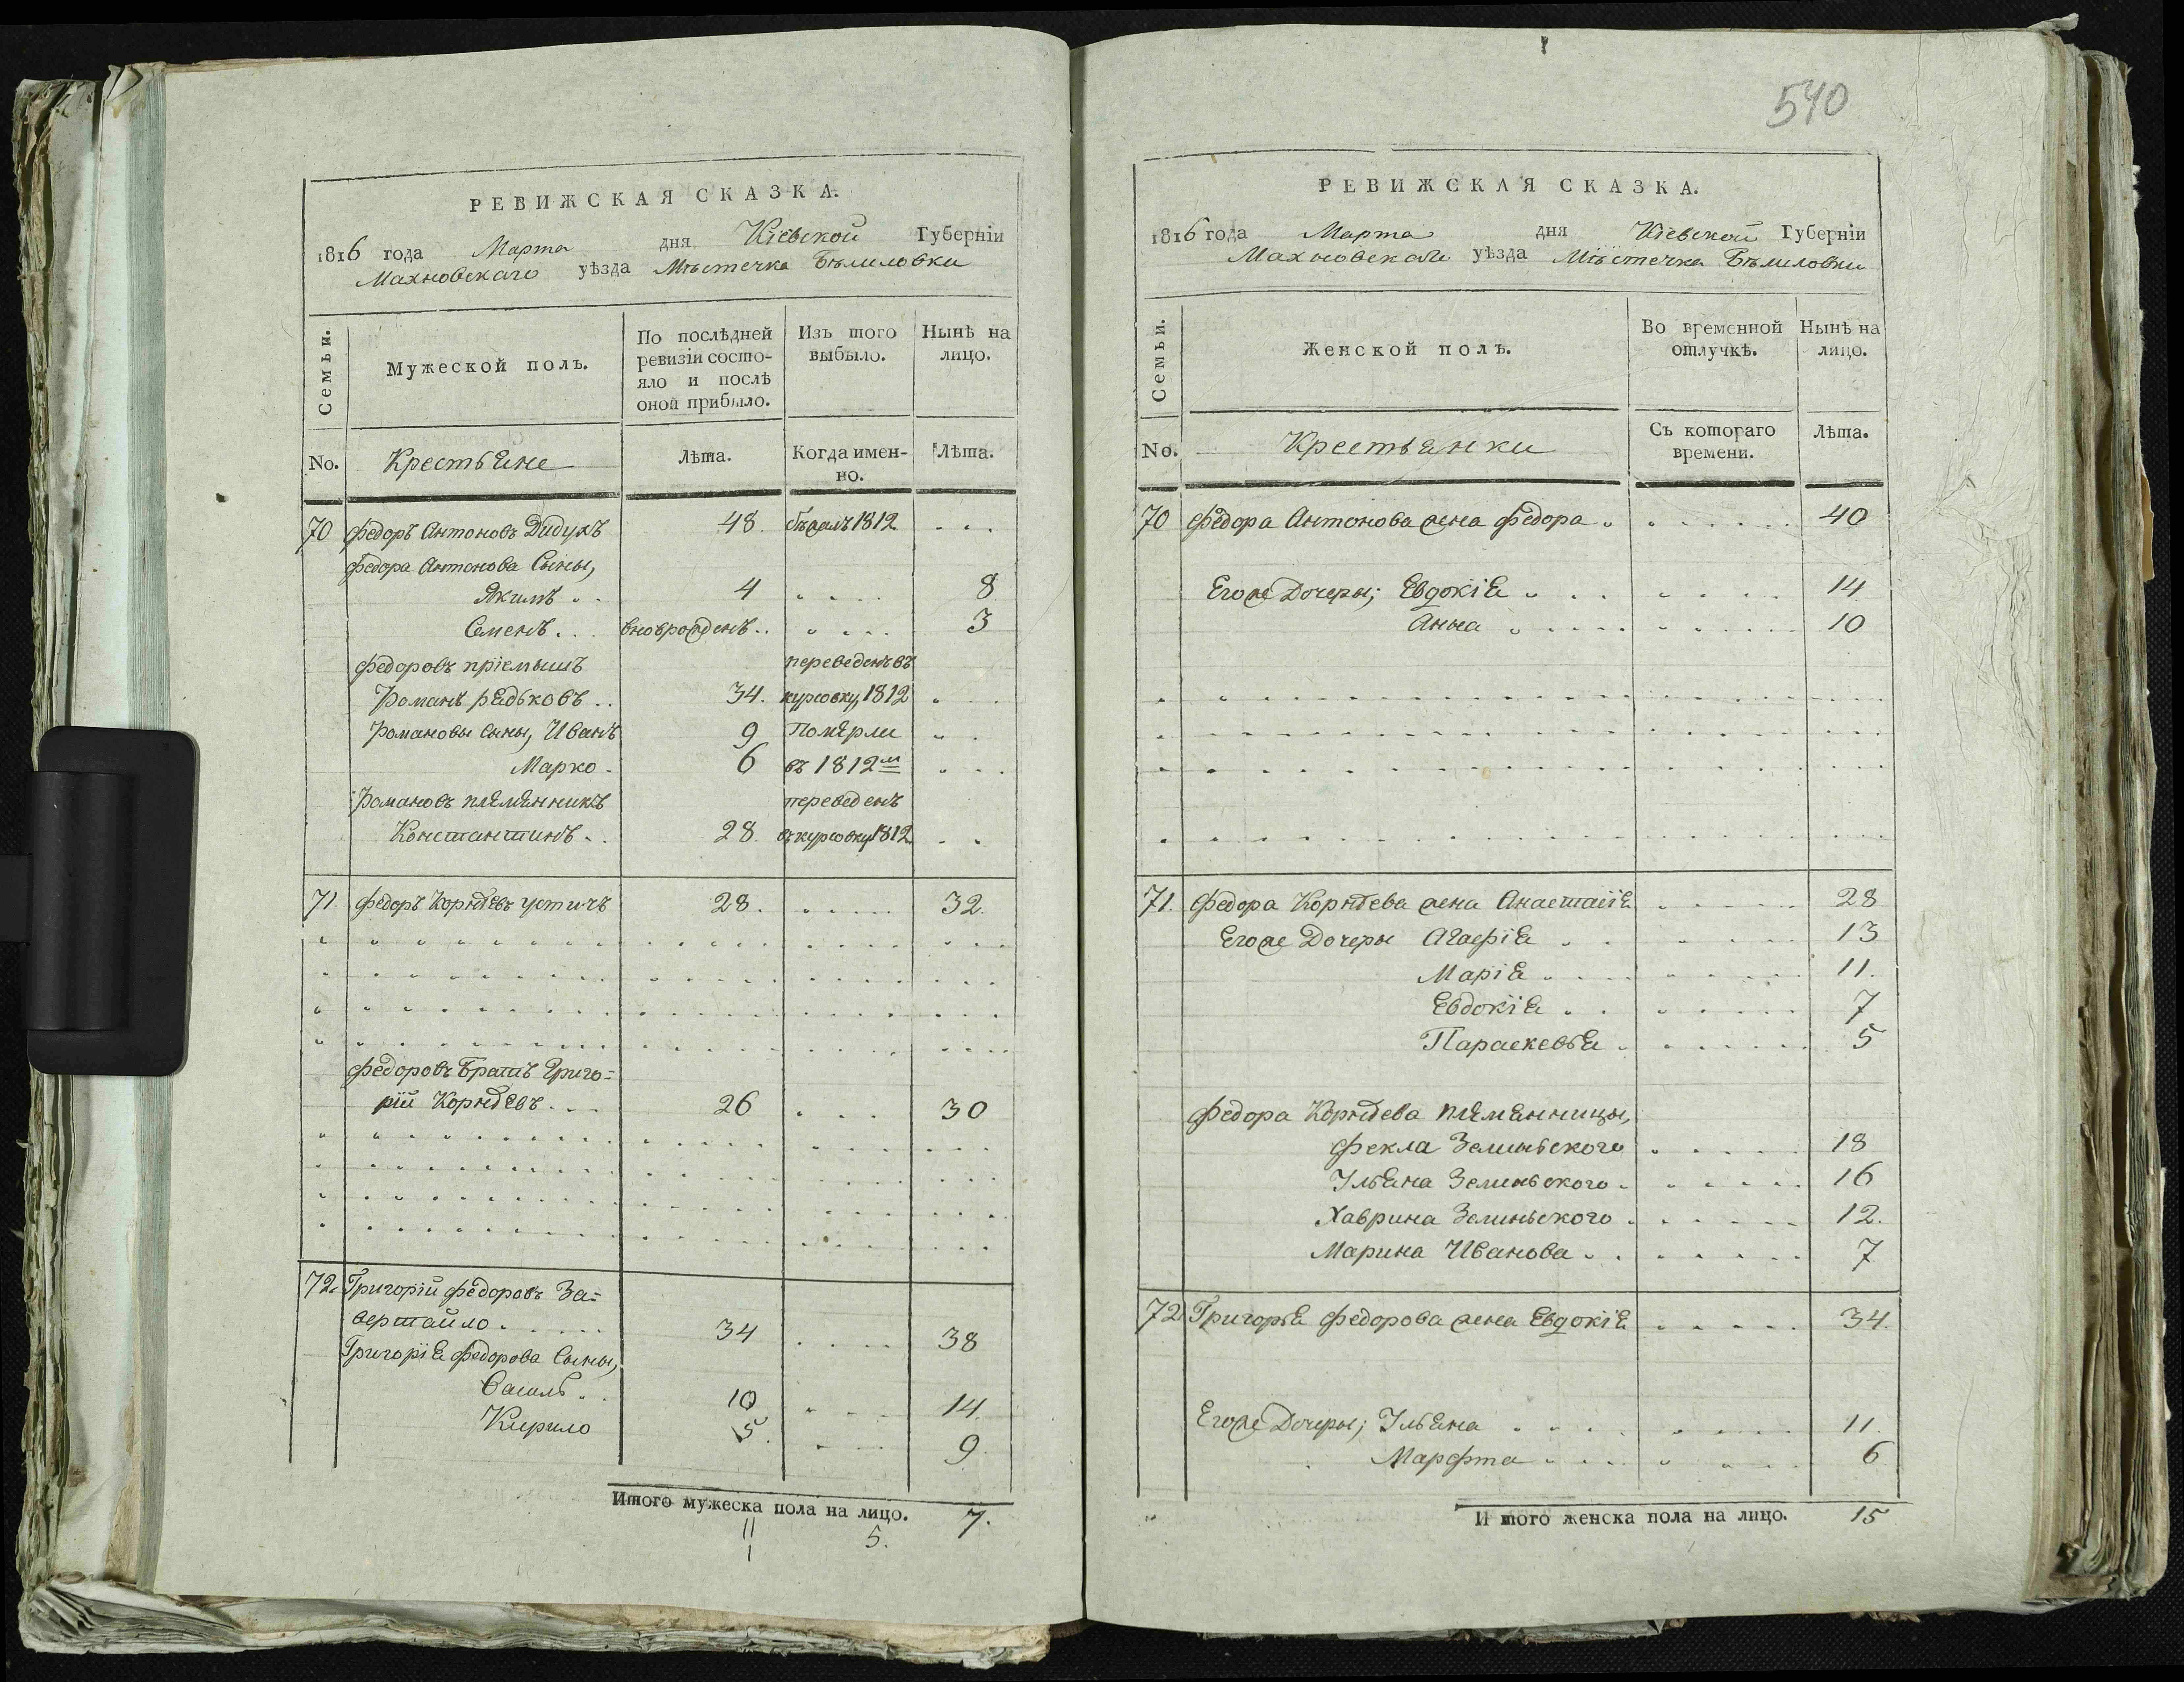 РЕВИЖСКАЯ СКАЗКА.
1816 года Марта дня Кіевской Губерніи
Махновскаго уѣзда Мѣстечка Бѣлиловки
Семьи.
Мужеской полъ.
По послѣдней ревизіи состояло и послѣ оной прибыло.
Изъ того выбыло.
Нынѣ на лицо.
No. Крестьяне Лѣта. Когда именно. Лѣта.
70 Федоръ Антоновъ Дидухъ 48. бѣжалъ 1812 . . .
Федора Антонова Сыны,
Якимъ . . 4 . . . . 8
Семенъ . . . вновърожденъ . . . . . . 3
Федоровъ пріемышъ переведенъ въ
Романъ Редьковъ . . 34. 1812 . . .
Романовы Сыны, Иванъ 9 Померли . .
Марко . 6 въ 1812м . . .
Романовъ племянникъ переведенъ
Константинъ . . 28. 1812 . .
71. Федоръ Корнѣевъ Устичъ 28. . . . . . 32.
Федоровъ Братъ Григо=
рій Корнѣевъ . . . 26 . . . 30
72. Григорій Федоровъ За=
верташло . . . . . 34 . . . . 38
Григорія Федорова Сыны,
Василь . . 10 . . . 14.
Кирило 5. . . . 9.
Итого мужеска пола на лицо. 7.
11 5.
1
540
РЕВИЖСКАЯ СКАЗКА.
1816 года Марта дня Кіевской Губерніи
Махновскаго уѣзда Мѣстечка Бѣлиловки
Семьи.
Женской полъ.
Во временной отлучкѣ.
Нынѣ на лицо.
No. Крестьянки Съ котораго времени. Лѣта.
70 Федора Антонова жена Федора . . . . . . . 40
Егоже Дочеры; Евдокія . . . . . . . . 14
Анна . . . . . . . . . . 10
71. Федора Корнѣева жена Анастасія . . . . . . 28
Егоже Дочеры Агафія . . . . . . . 13
Марія . . . . . . . . 11.
Евдокія . . . . . . . 7
Параскевія . . . . . . . 5
Федора Корнѣева племянницы,
Фекла Зелинского . . . . . 18
Ульяна Зелинского . . . . . . 16
Хаврина Зелинского . . . . . . 12.
Марина Иванова . . . . . . . 7
72. Григорія Федорова жена Евдокія . . . . . 34.
Егоже Дочеры; Ульяна . . . . . . . . 11.
Марфта . . . . . . . . 6
И того женска пола на лицо. 15